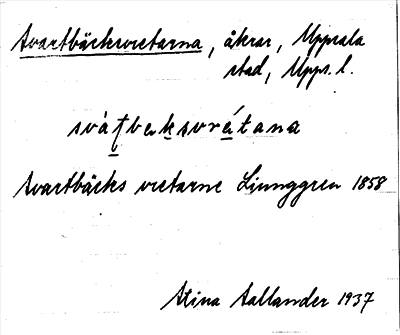 Svartbäcksvretarna, åkrar, Uppsala
stad, Upps. l.
svàṭbeksvrétana
Svartbäcks vretarne Ljunggren 1858
Stina Sallander 1937